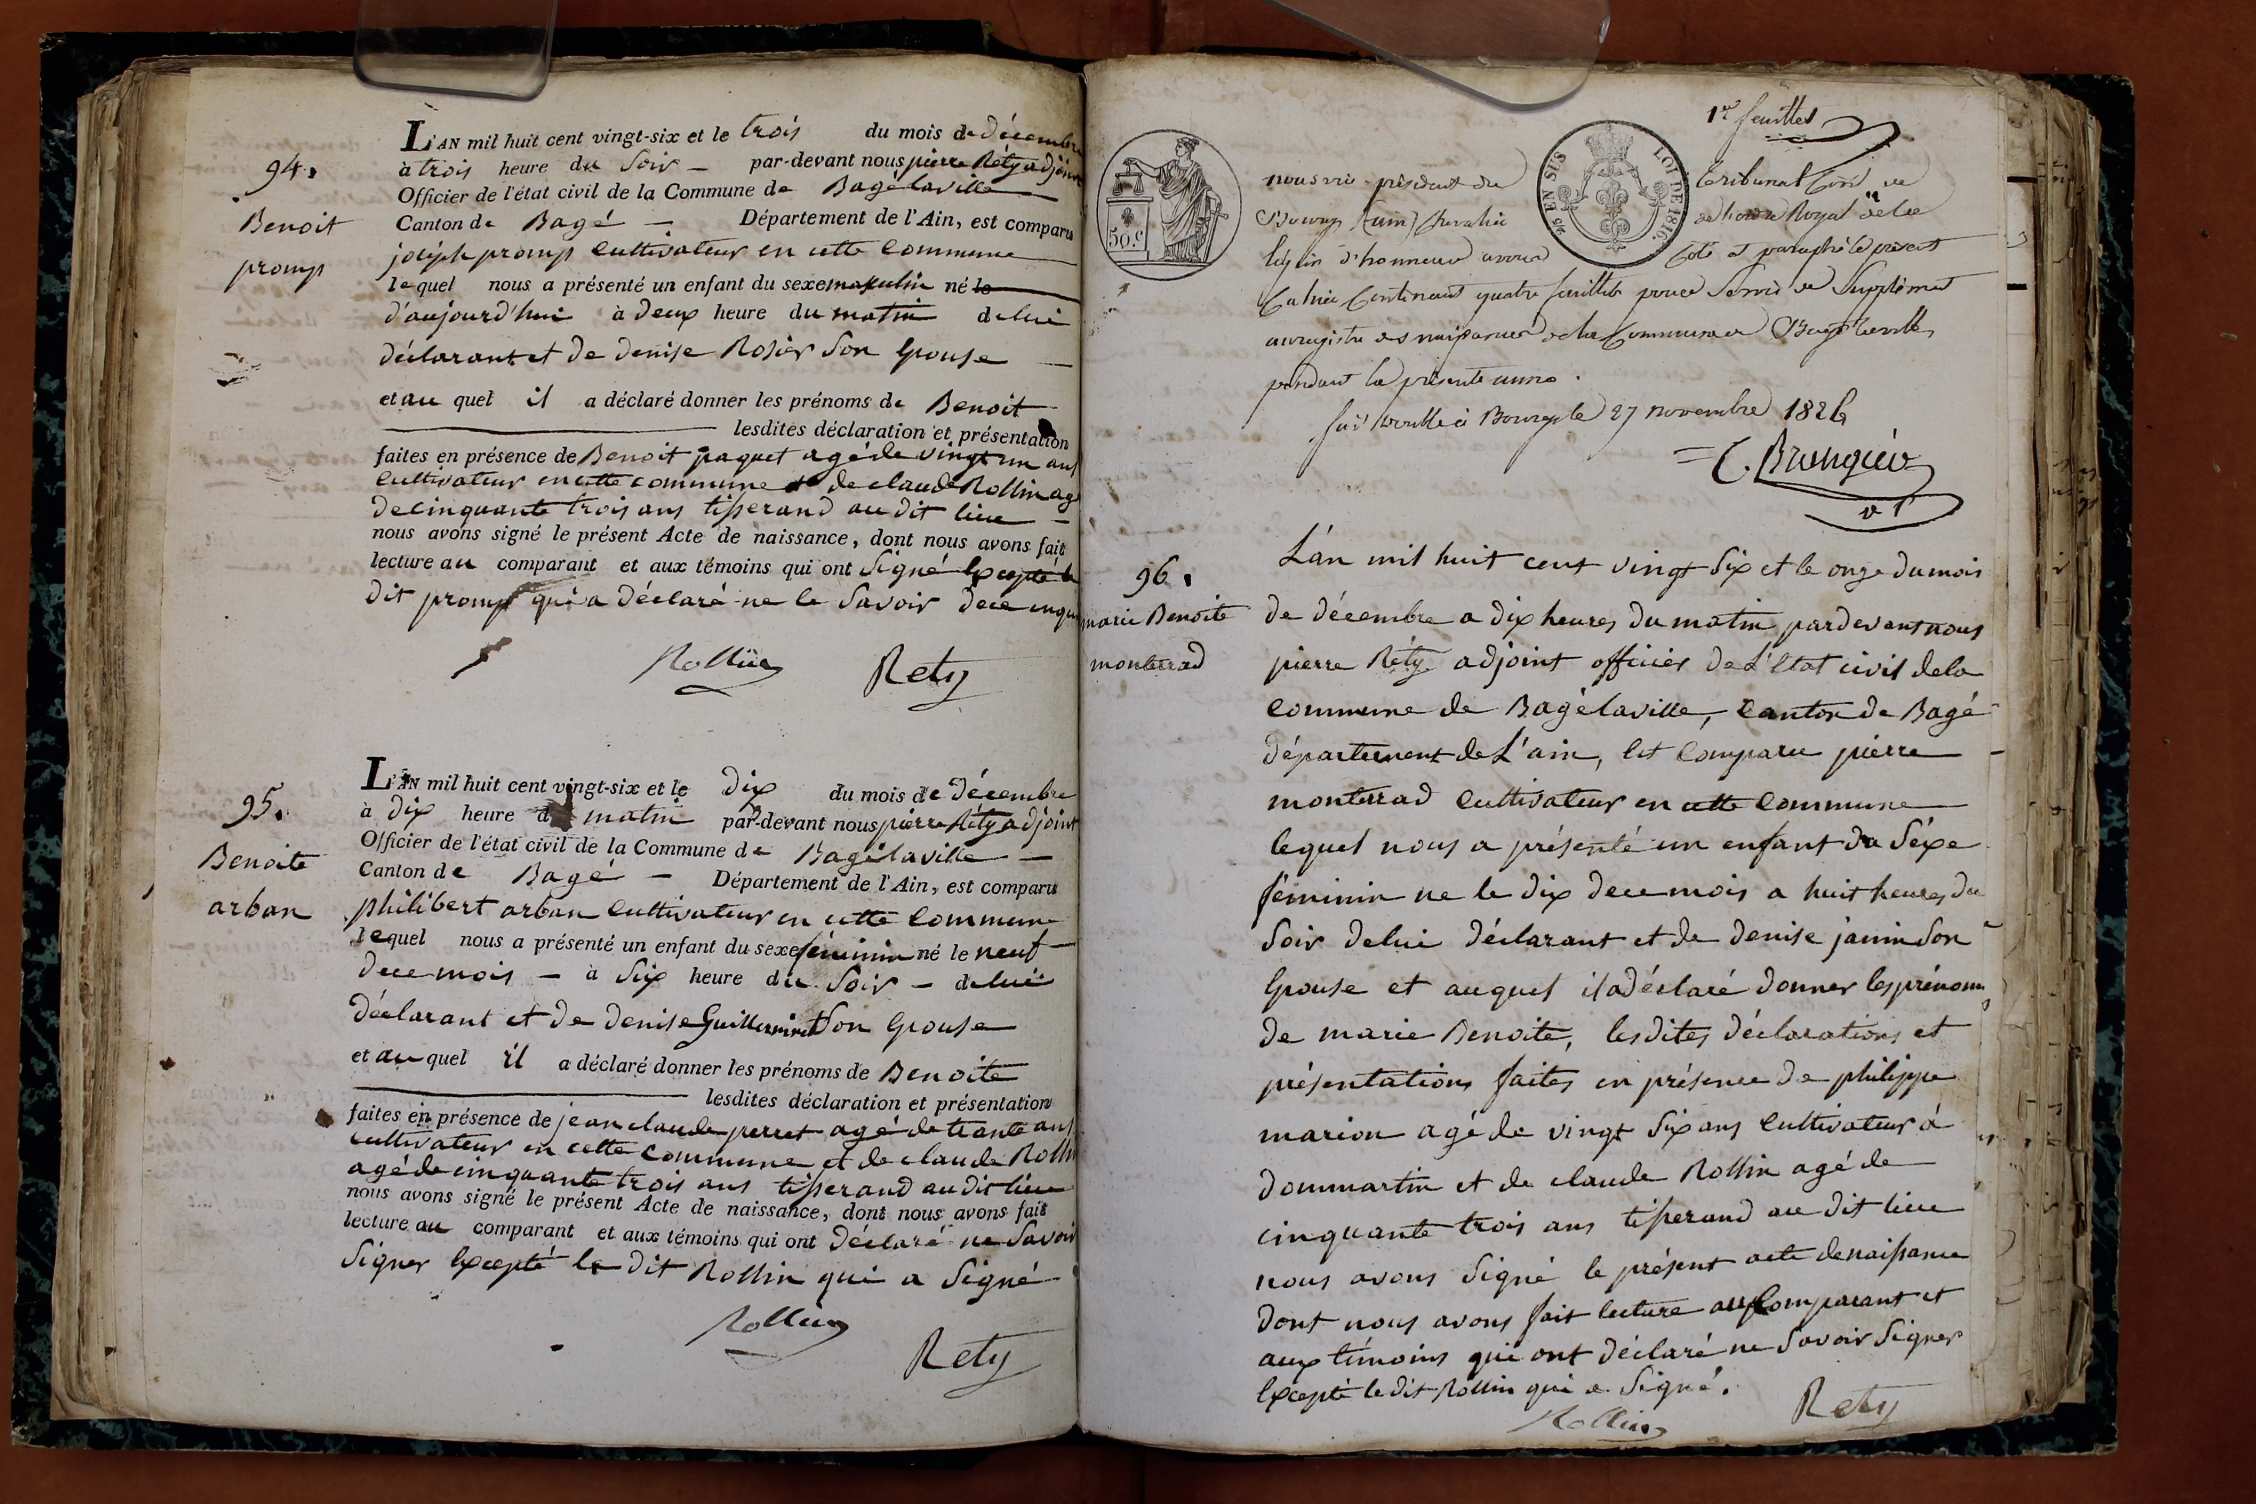 94.
Benoit
promp
L'AN mil huit cent vingt-six et le trois du mois de décembre
à trois heure du soir — par-devant nous pierre Réty adjoint
Officier de l'état civil de la Commune de Bagélaville
Canton de Bagé — Département de l'Ain, est comparu
joseph promp cultivateur en cette commune
lequel nous a présenté un enfant du sexe masculin né le
d'aujourd'hui à deux heure du matin de lui
déclarant et de denise Rosier son Epouse
et au quel il a déclaré donner les prénoms de Benoit
lesdites déclaration et présentation
faites en présence de Benoit paquet agé de vingt un ans
cultivateur en cette commune et de claude Rollin agé
de cinquante trois ans tisserand au dit lieu —
nous avons signé le présent Acte de naissance, dont nous avons fait
lecture au comparant et aux témoins qui ont signé Excepté le
dit promp qui a déclaré ne le savoir de ce enquis
Rollin Rety
95.
Benoite
arban
L'AN mil huit cent vingt-six et le dix du mois de décembre
à dix heure du matin par-devant nous pierre Réty adjoint
Officier de l'état civil de la Commune de Bagélaville —
Canton de Bagé — Département de l'Ain, est comparu
philibert arban cultivateur en cette commune
lequel nous a présenté un enfant du sexe féminin né le neuf
de ce mois — à six heure du soir — de lui
déclarant et de denise Guillerminet son Epouse
et au quel il a déclaré donner les prénoms de Benoite
lesdites déclaration et présentation
faites en présence de jean claude perret agé de trante ans
cultivateur en cette commune et de claude Rollin
agé de cinquante trois ans tisserand au dit lieu
nous avons signé le présent Acte de naissance, dont nous avons fait
lecture au comparant et aux témoins qui ont déclaré ne savoir
signer Excepté le dit Rollin qui a signé
Rollin
Rety
1er feuillet
50 c
2/5 EN SUS LOI DE 1816.
nous vice président du tribunal Civil de
Bourg (ain) Chevalier de l'ordre Royal de la
légion d'honneur avons Coté et paraphé le présent
Cahier Contenant quatre feuillets pour Servir de Supplément
au registre des naissances de la Commune de Bagé laville,
pendant la présente année.
fait double à Bourg le 27 novembre 1826
C. Brangier
v P
96.
marie Benoite
monterrad
L'an mil huit cent vingt six et le onze du mois
de décembre a dix heures du matin par devant nous
pierre Réty adjoint officier de L'Etat civil de la
commune de Bagélaville, canton de Bagé
département de L'ain, Est comparu pierre —
monterrad cultivateur en cette commune
lequel nous a présenté un enfant du séxe
féminin ne le dix de ce mois a huit heures du
soir de lui déclarant et de denise janin son
Epouse et auquel il a déclaré donner les prénoms
de marie Benoite, lesdites déclarations et
présentations faites en présence de philippe
marion agé de vingt six ans cultivateur à
dommartin et de claude Rollin agé de
cinquante trois ans tisserand au dit lieu
nous avons signé le présent acte de naissance
dont nous avons fait lecture au comparant et
aux témoins qui ont déclaré ne savoir signer
Excepté le dit Rollin qui a signé.
Rollin Rety